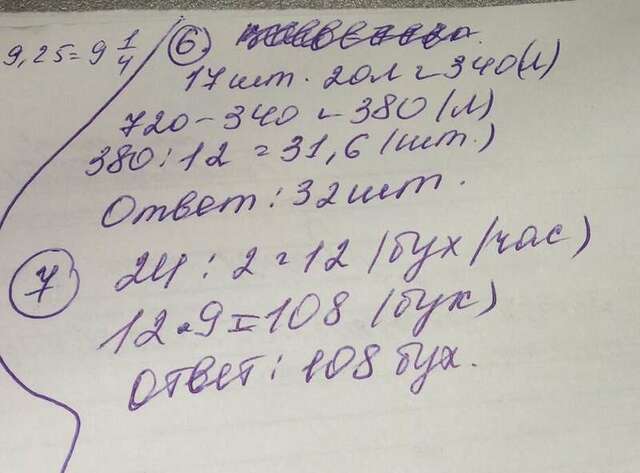 9,25 = 9 1/4
6.
17 шт. 20л = 340(л)
720 - 340 = 380 (л)
380 : 12 = 31,6 (шт.)
Ответ : 32 шт.
7
24 : 2 = 12 (бух/час)
12 · 9 = 108 (бух)
Ответ : 108 бух.